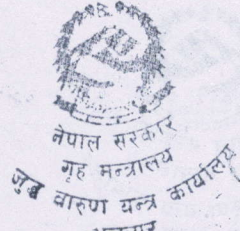 नेपाल सरकार
गृह मन्त्रालय
जुद्ध वारुण यन्त्र कार्यालय